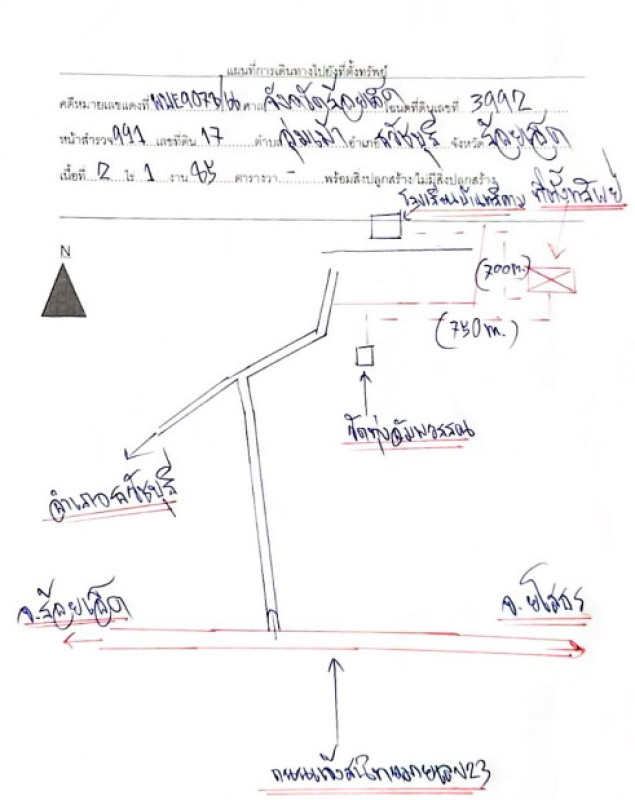 แผนที่การเดินทางไปยังที่ตั้งทรัพย์
คดีหมายเลขแดงที่ ผบE907/66 ศาล จังหวัดร้อยเอ็ด โฉนดที่ดินเลขที่ 3992
หน้าสำรวจ 991 เลขที่ดิน 17 ตำบล วุ้มเม้า อำเภอ ธวัชบุรี จังหวัด ร้อยเอ็ด
เนื้อที่ 2 ไร่ 1 งาน 85 ตารางวา - พร้อมสิ่งปลูกสร้าง/ไม่มีสิ่งปลูกสร้าง
โรงเรียนบ้าน ที่ตั้งทรัพย์
N
(700m.)
(750m.)
วัดทุ่งอัมพวรรณ
อำเภอธวัชบุรี
จ.ร้อยเอ็ด
จ.ยโสธร
ถนนแจ้งสนิททางหลวง23